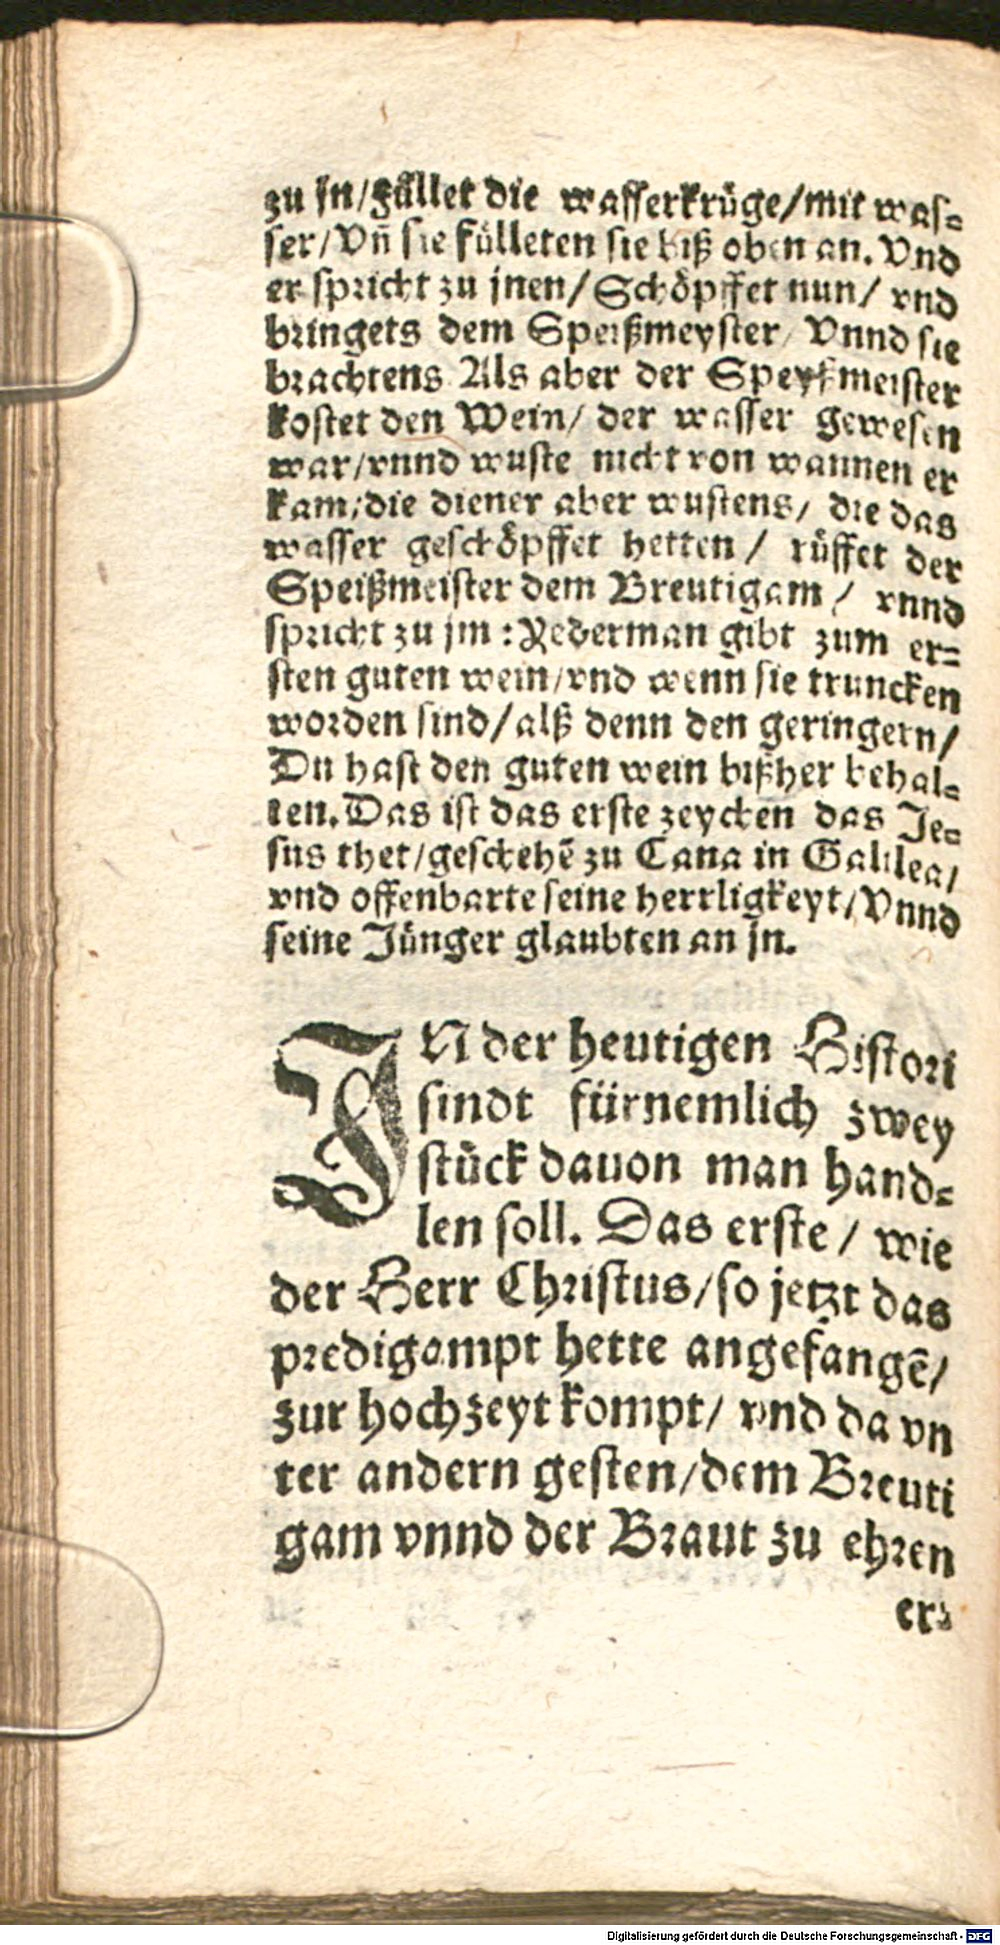 zu jn/Füllet die wasserkrüge/mit was-
ser/Vñ sie fülleten sie biß oben an. Vnd
er spricht zu jnen/Schöpffet nun/ vnd
bringets dem Speißmeyster/ Vnnd sie
brachtens Als aber der Speyßmeister
kostet den Wein/ der wasser gewesen
war/vnnd wuste nicht von wannen er
kam/die diener aber wustens/ die das
wasser geschöpffet hetten / rüffet der
Speißmeister dem Breutigam / vnnd
spricht zu jm : Yederman gibt zum er-
sten guten wein/vnd wenn sie truncken
worden sind/alß denn den geringern/
Du hast den guten wein bißher behal-
ten. Das ist das erste zeychen das Je-
sus thet/geschehẽ zu Cana in Galilea/
vnd offenbarte seine herrligkeyt/Vnnd
seine Jünger glaubten an jn.
IN der heutigen Histori
sindt fürnemlich zwey
stück dauon man hand-
len soll. Das erste / wie
der Herr Christus/so jetzt das
predigampt hette angefangẽ/
zur hochzeyt kompt/ vnd da vn
ter andern gesten/dem Breuti
gam vnnd der Braut zu ehren
er-
Digitalisierung gefördert durch die Deutsche Forschungsgemeinschaft - DFG